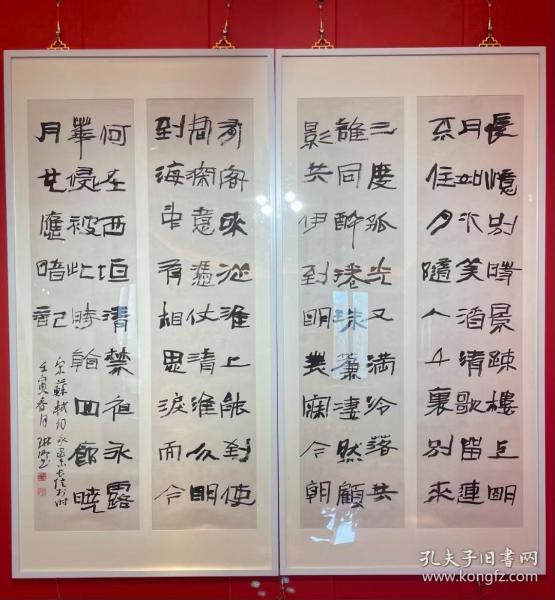 長憶別時景疎樓上明
月如水美酒清歌留連
不住月隨人千里別來
三度孤光又滿冷落共
誰同醉捲珠簾淒然顧
影共伊到明無寐今朝
有客來從淮上能到使
君深意憑仗清淮分明
到海中有相思淚而今
何在西垣清禁夜永露
華侵被此時看回廊曉
月也應暗記
宋蘇軾詞永遇樂長憶別時
壬寅春月
孔夫子旧书网
www.kongfz.com